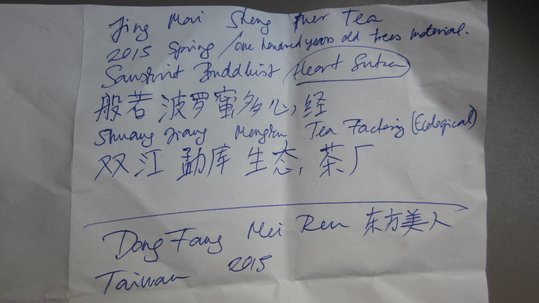 Jing Mai Sheng Puer Tea
2015 Spring / one hundred years old trees material.
Sanskrit Buddhist / Heart Sutra
般若波罗蜜多心经
Shuang Jiang Mengku Tea Factory (Ecological)
双江 勐库 生态 茶厂
Dong Fang Mei Ren 东方美人
Taiwan 2015